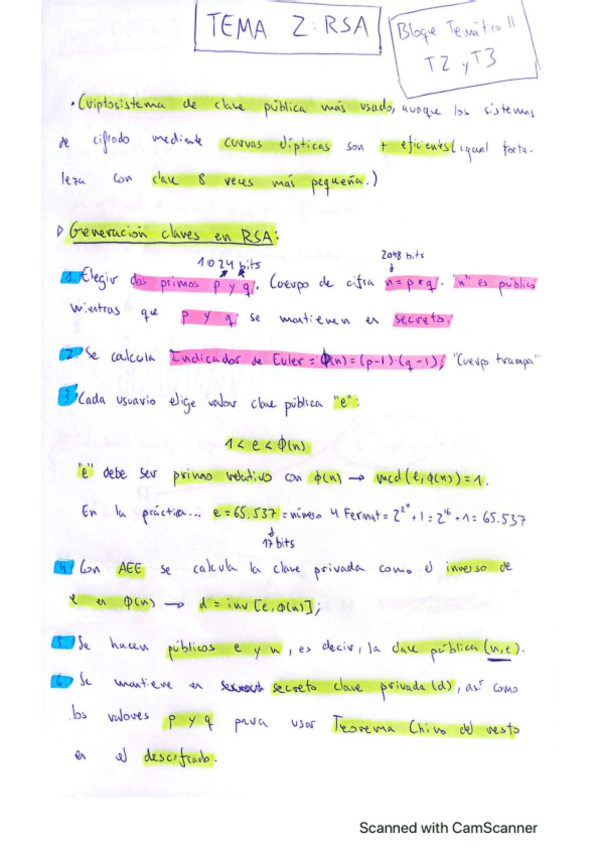 TEMA 2: RSA
Bloque Temático II
T2 y T3
• Criptosistema de clave pública más usado, aunque los sistemas
de cifrado mediante curvas elípticas son + eficientes (igual forta-
leza con clave 8 veces más pequeña.)
▷ Generación claves en RSA:
1024 bits
2048 bits
1. Elegir dos primos p y q. Cuerpo de cifra n = p * q. "n" es público
mientras que p y q se mantienen en secreto.
2. Se calcula Indicador de Euler = ϕ(n) = (p-1)·(q-1); "Cuerpo trampa"
3. Cada usuario elige valor clave pública "e":
1 < e < ϕ(n)
"e" debe ser primo relativo con ϕ(n) → mcd(e, ϕ(n)) = 1.
En la práctica... e = 65.537 = número 4 Fermat = 2^2^4 + 1 = 2^16 + 1 = 65.537
17 bits
4. Con AEE se calcula la clave privada como el inverso de
e en ϕ(n) → d = inv [e, ϕ(n)];
5. Se hacen públicos e y n, es decir, la clave pública (n,e).
6. Se mantiene en secreto clave privada (d), así como
los valores p y q para usar Teorema Chino del resto
en el descifrado.
Scanned with CamScanner